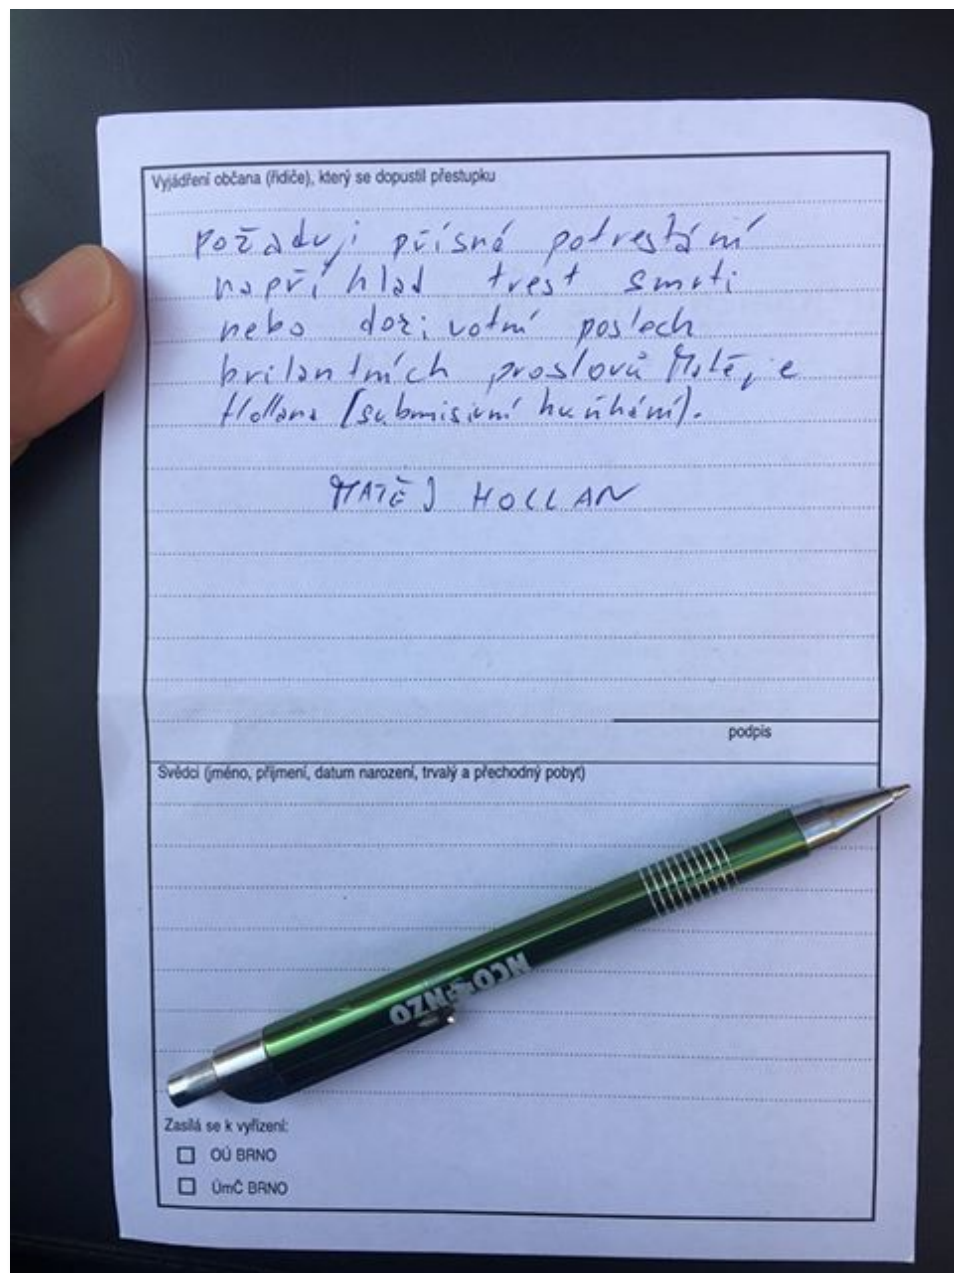 Vyjádření občana (řidiče), který se dopustil přestupku
Požaduji přísné potrestání
například trest smrti
nebo doživotní poslech
brilantních proslovů Matěje
Hollana (submisivní huňhání).
MATĚJ HOLLAN
podpis
Svědci (jméno, příjmení, datum narození, trvalý a přechodný pobyt)
NCO NZO
Zasílá se k vyřízení:
OÚ BRNO
ÚmČ BRNO